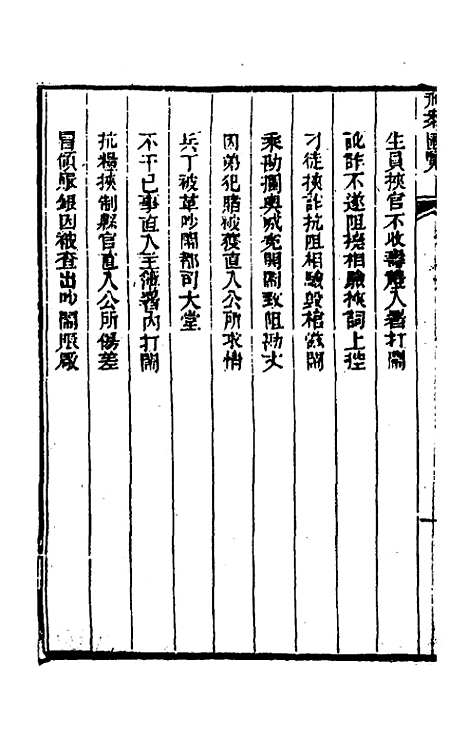 刑案匯覽
生員挾官不收專雙入署打鬧
訛詐不遂阻撓相驗挾詞上控
刁徒挾詐抗阻相驗毀棺滋鬧
乘勘攔輿喊冤開鬧致阻勘丈
因弟犯賭被獲直入公所求情
兵丁被革吵鬧都司大堂
不干己事直入主簿署內打鬧
抗糧挾制縣官直入公所傷差
冒領賑銀因被查出吵鬧賑廠